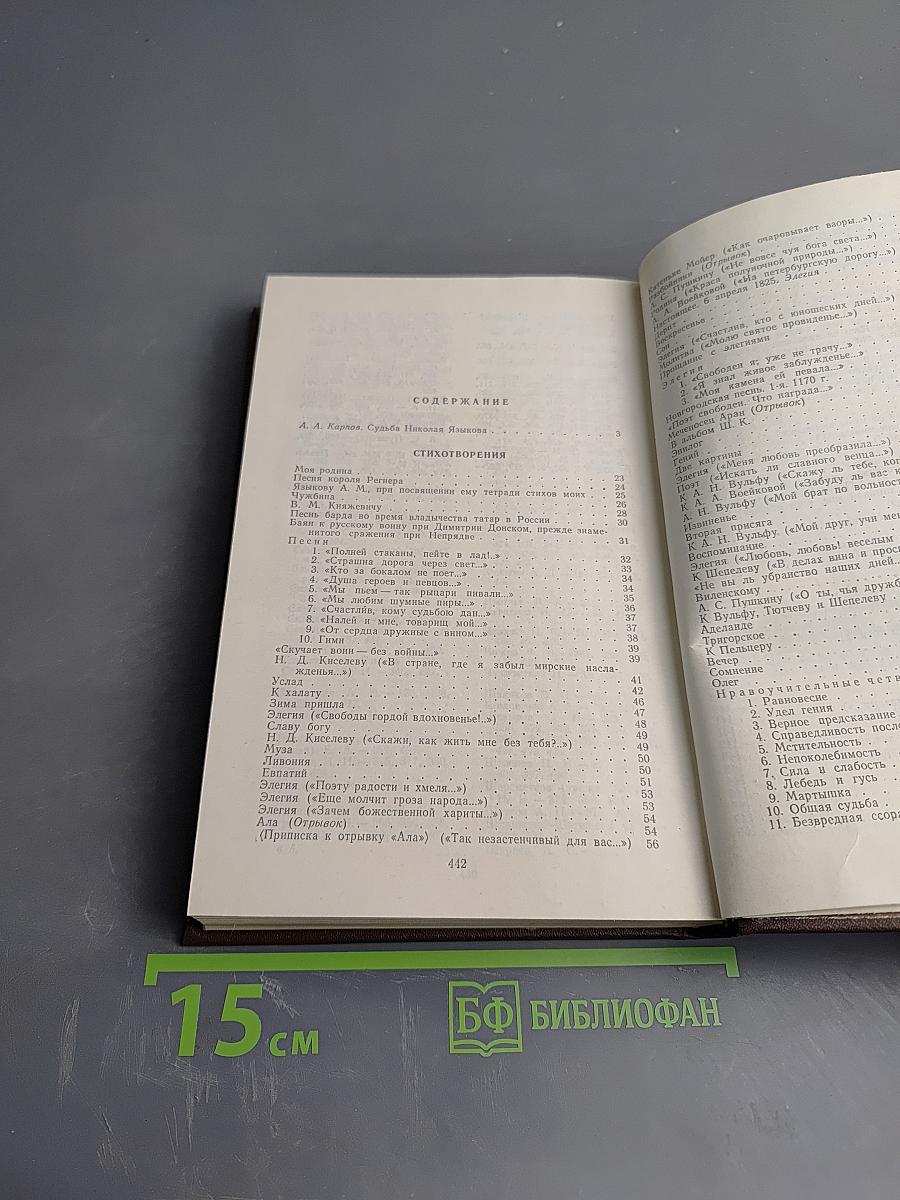 СОДЕРЖАНИЕ
А. А. Карпов. Судьба Николая Языкова . . . 3
СТИХОТВОРЕНИЯ
Моя родина . . . 23
Песня короля Регнера . . . 24
Языкову А. М., при посвящении ему тетради стихов моих . . . 25
Чужбина . . . 26
В. М. Княжевичу . . . 28
Песнь барда во время владычества татар в России . . . 30
Баян к русскому воину при Димитрии Донском, прежде знаме-
нитого сражения при Непрядве . . . 31
Песни
1. «Полней стаканы, пейте в лад!..» . . . 32
2. «Страшна дорога через свет...» . . . 33
3. «Кто за бокалом не поет...» . . . 34
4. «Душа героев и певцов...» . . . 34
5. «Мы пьем — так рыцари пивали...» . . . 35
6. «Мы любим шумные пиры...» . . . 36
7. «Счастлив, кому судьбою дан...» . . . 37
8. «Налей и мне, товарищ мой...» . . . 37
9. «От сердца дружные с вином...» . . . 38
10. Гимн . . . 39
«Скучает воин — без войны...» . . . 39
Н. Д. Киселеву («В стране, где я забыл мирские насла-
жденья...») . . . 41
Услад . . . 42
К халату . . . 46
Зима пришла . . . 47
Элегия («Свободы гордой вдохновенье!..») . . . 48
Славу богу . . . 49
Н. Д. Киселеву («Скажи, как жить мне без тебя?..») . . . 49
Муза . . . 50
Ливония . . . 50
Евпатий . . . 51
Элегия («Поэту радости и хмеля...») . . . 53
Элегия («Еще молчит гроза народа...») . . . 53
Элегия («Зачем божественной хариты...») . . . 54
Ала (Отрывок) . . . 54
〈Приписка к отрывку «Ала»〉 («Так незастенчивый для вас...») 56
442
Катеньке Мойер («Как очаровывает взоры...»)
Разбойники (Отрывок)
А. С. Пушкину («Не вовсе чуя бога света...»)
Родина («Краса полуночной природы...»)
А. А. Воейковой («На петербургскую дорогу...»)
Настоящее. 6 апреля 1825. Элегия
Дерпт
Воскресенье
Сон
Элегия («Счастлив, кто с юношеских дней...»)
Молитва («Молю святое провиденье...»)
Прощание с элегиями
Элегии
1. «Свободен я; уже не трачу...»
2. «Я знал живое заблужденье...»
3. «Моя камена ей певала...»
Новгородская песнь. 1-я. 1170 г.
«Поэт свободен. Что награда...»
Меченосец Аран (Отрывок)
В альбом Ш. К.
Эпилог
Гений
Две картины
Элегия («Меня любовь преобразила...»)
Поэт («Искать ли славного венца...»)
К А. Н. Вульфу («Скажу ль тебе, ког
К А. А. Воейковой («Забуду ль вас к
А. Н. Вульфу («Мой брат по вольност
Извиненье
Вторая присяга
К А. Н. Вульфу. («Мой друг, учи мен
Воспоминание
Элегия («Любовь, любовь! веселым
К Шепелеву («В делах вина и прос
«Не вы ль убранство наших дней...
Виленскому
А. С. Пушкину («О ты, чья дружб
К Вульфу, Тютчеву и Шепелеву
Аделаиде
Тригорское
К Пельцеру
Вечер
Сомнение
Олег
Нравоучительные четв
1. Равновесие
2. Удел гения
3. Верное предсказание
4. Справедливость после
5. Мстительность
6. Непоколебимость
7. Сила и слабость
8. Лебедь и гусь
9. Мартышка
10. Общая судьба
11. Безвредная ссора
15 см
БФ БИБЛИОФАН